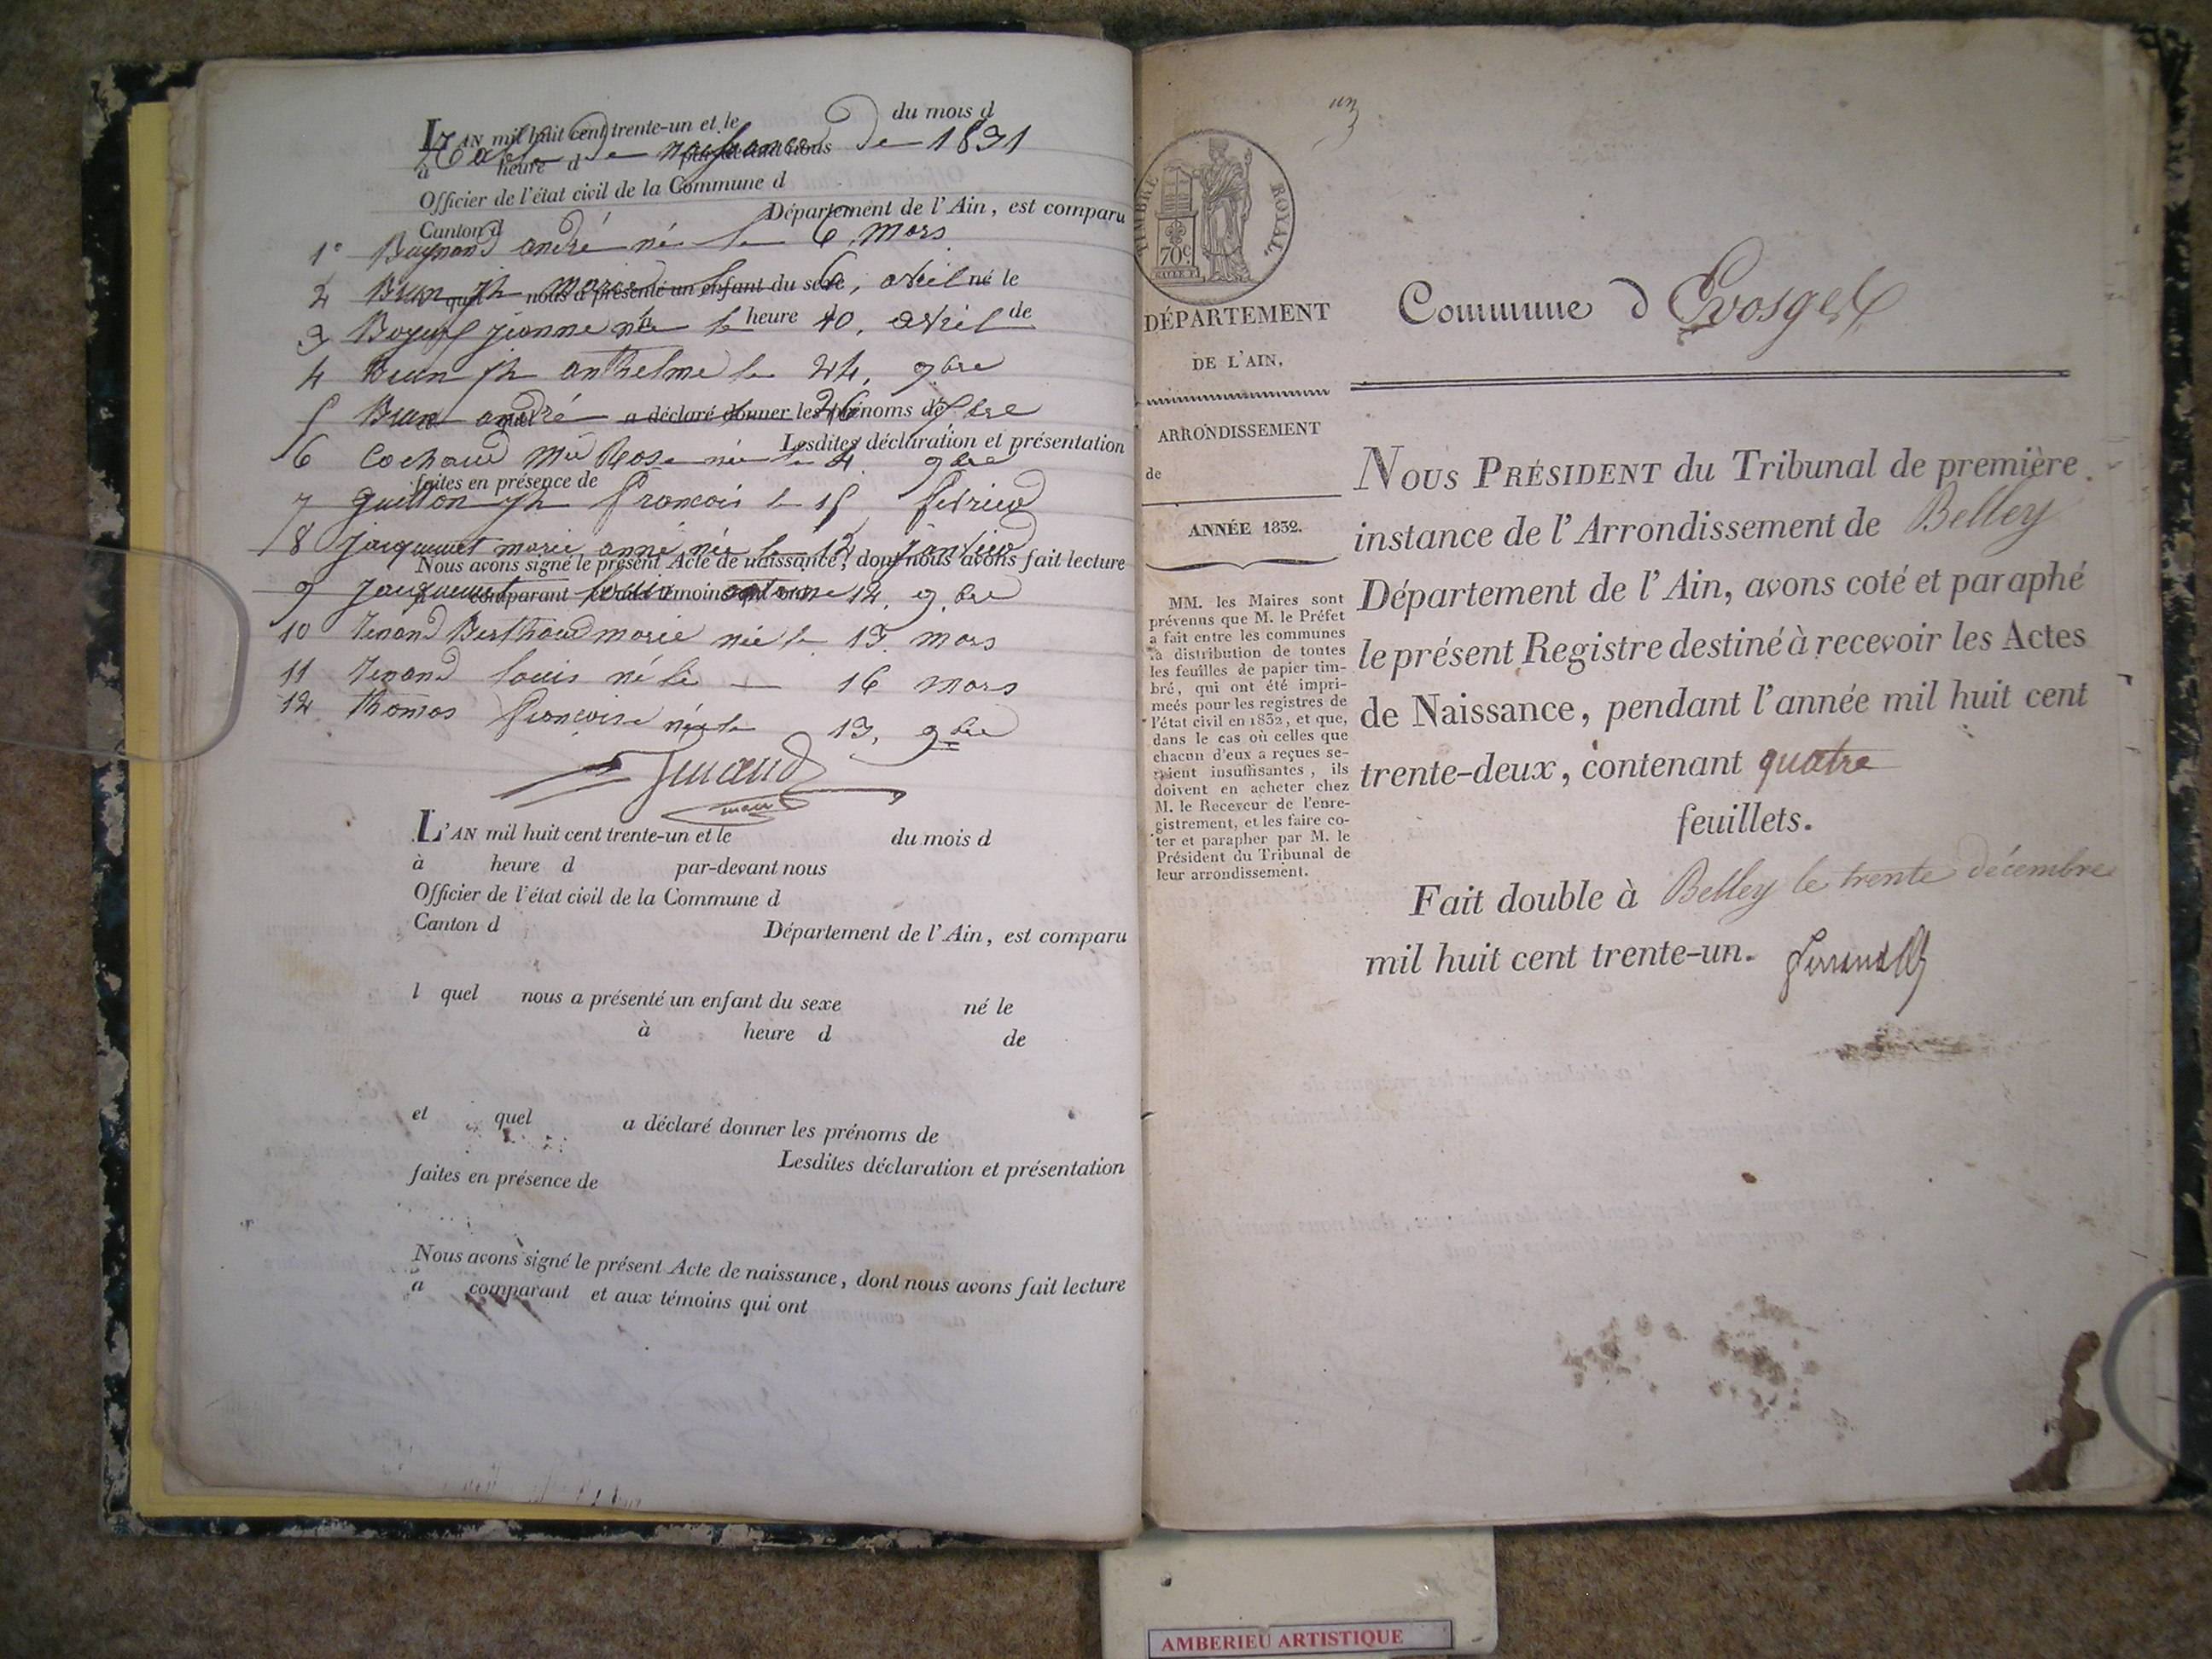 L'AN mil huit cent trente-un et le du mois d
Table de naissance de 1831
à heure d par-devant nous
Officier de l'état civil de la Commune d
Canton d Département de l'Ain, est comparu
1° andré né le 6, mars
2 Brun jh marie le 6, avril
quel nous a présenté un enfant du sexe né le
3 jeanne née le 10, avril
à heure de
4 Brun jh anthelme le 24, 9bre
5 Brun andré le 26
quel a déclaré donner les prénoms de
Lesdites déclaration et présentation
6 Cochaud Mie Rose née le 4 9bre
faites en présence de
7 Guillon jh françois le 15 février
8 jacquemet marie anne née le 12 janvier
Nous avons signé le présent Acte de naissance, dont nous avons fait lecture
9 jacquemet antoine 12, 9bre
a comparant témoins qui ont
10 Tenand Berthaud marie née le 13. mars
11 Tenand louis né le 16 mars
12 thomas françoise née le 13, 9bre
Tenand
maire
L'AN mil huit cent trente-un et le du mois d
à heure d par-devant nous
Officier de l'état civil de la Commune d
Canton d Département de l'Ain, est comparu
l quel nous a présenté un enfant du sexe né le
à heure d de
et quel a déclaré donner les prénoms de
Lesdites déclaration et présentation
faites en présence de
Nous avons signé le présent Acte de naissance, dont nous avons fait lecture
a comparant et aux témoins qui ont
un
TIMBRE ROYAL.
70c.
Commune d Evosges
DÉPARTEMENT
DE L'AIN.
ARRONDISSEMENT
de
ANNÉE 1832.
MM. les Maires sont
prévenus que M. le Préfet
a fait entre les communes
la distribution de toutes
les feuilles de papier tim-
bré, qui ont été impri-
meés pour les registres de
l'état civil en 1832, et que,
dans le cas où celles que
chacun d'eux a reçues se-
raient insuffisantes, ils
doivent en acheter chez
M. le Receveur de l'enre-
gistrement, et les faire co-
ter et parapher par M. le
Président du Tribunal de
leur arrondissement.
NOUS PRÉSIDENT du Tribunal de première
instance de l'Arrondissement de Belley
Département de l'Ain, avons coté et paraphé
le présent Registre destiné à recevoir les Actes
de Naissance, pendant l'année mil huit cent
trente-deux, contenant quatre
feuillets.
Fait double à Belley le trente décembre
mil huit cent trente-un.
AMBERIEU ARTISTIQUE